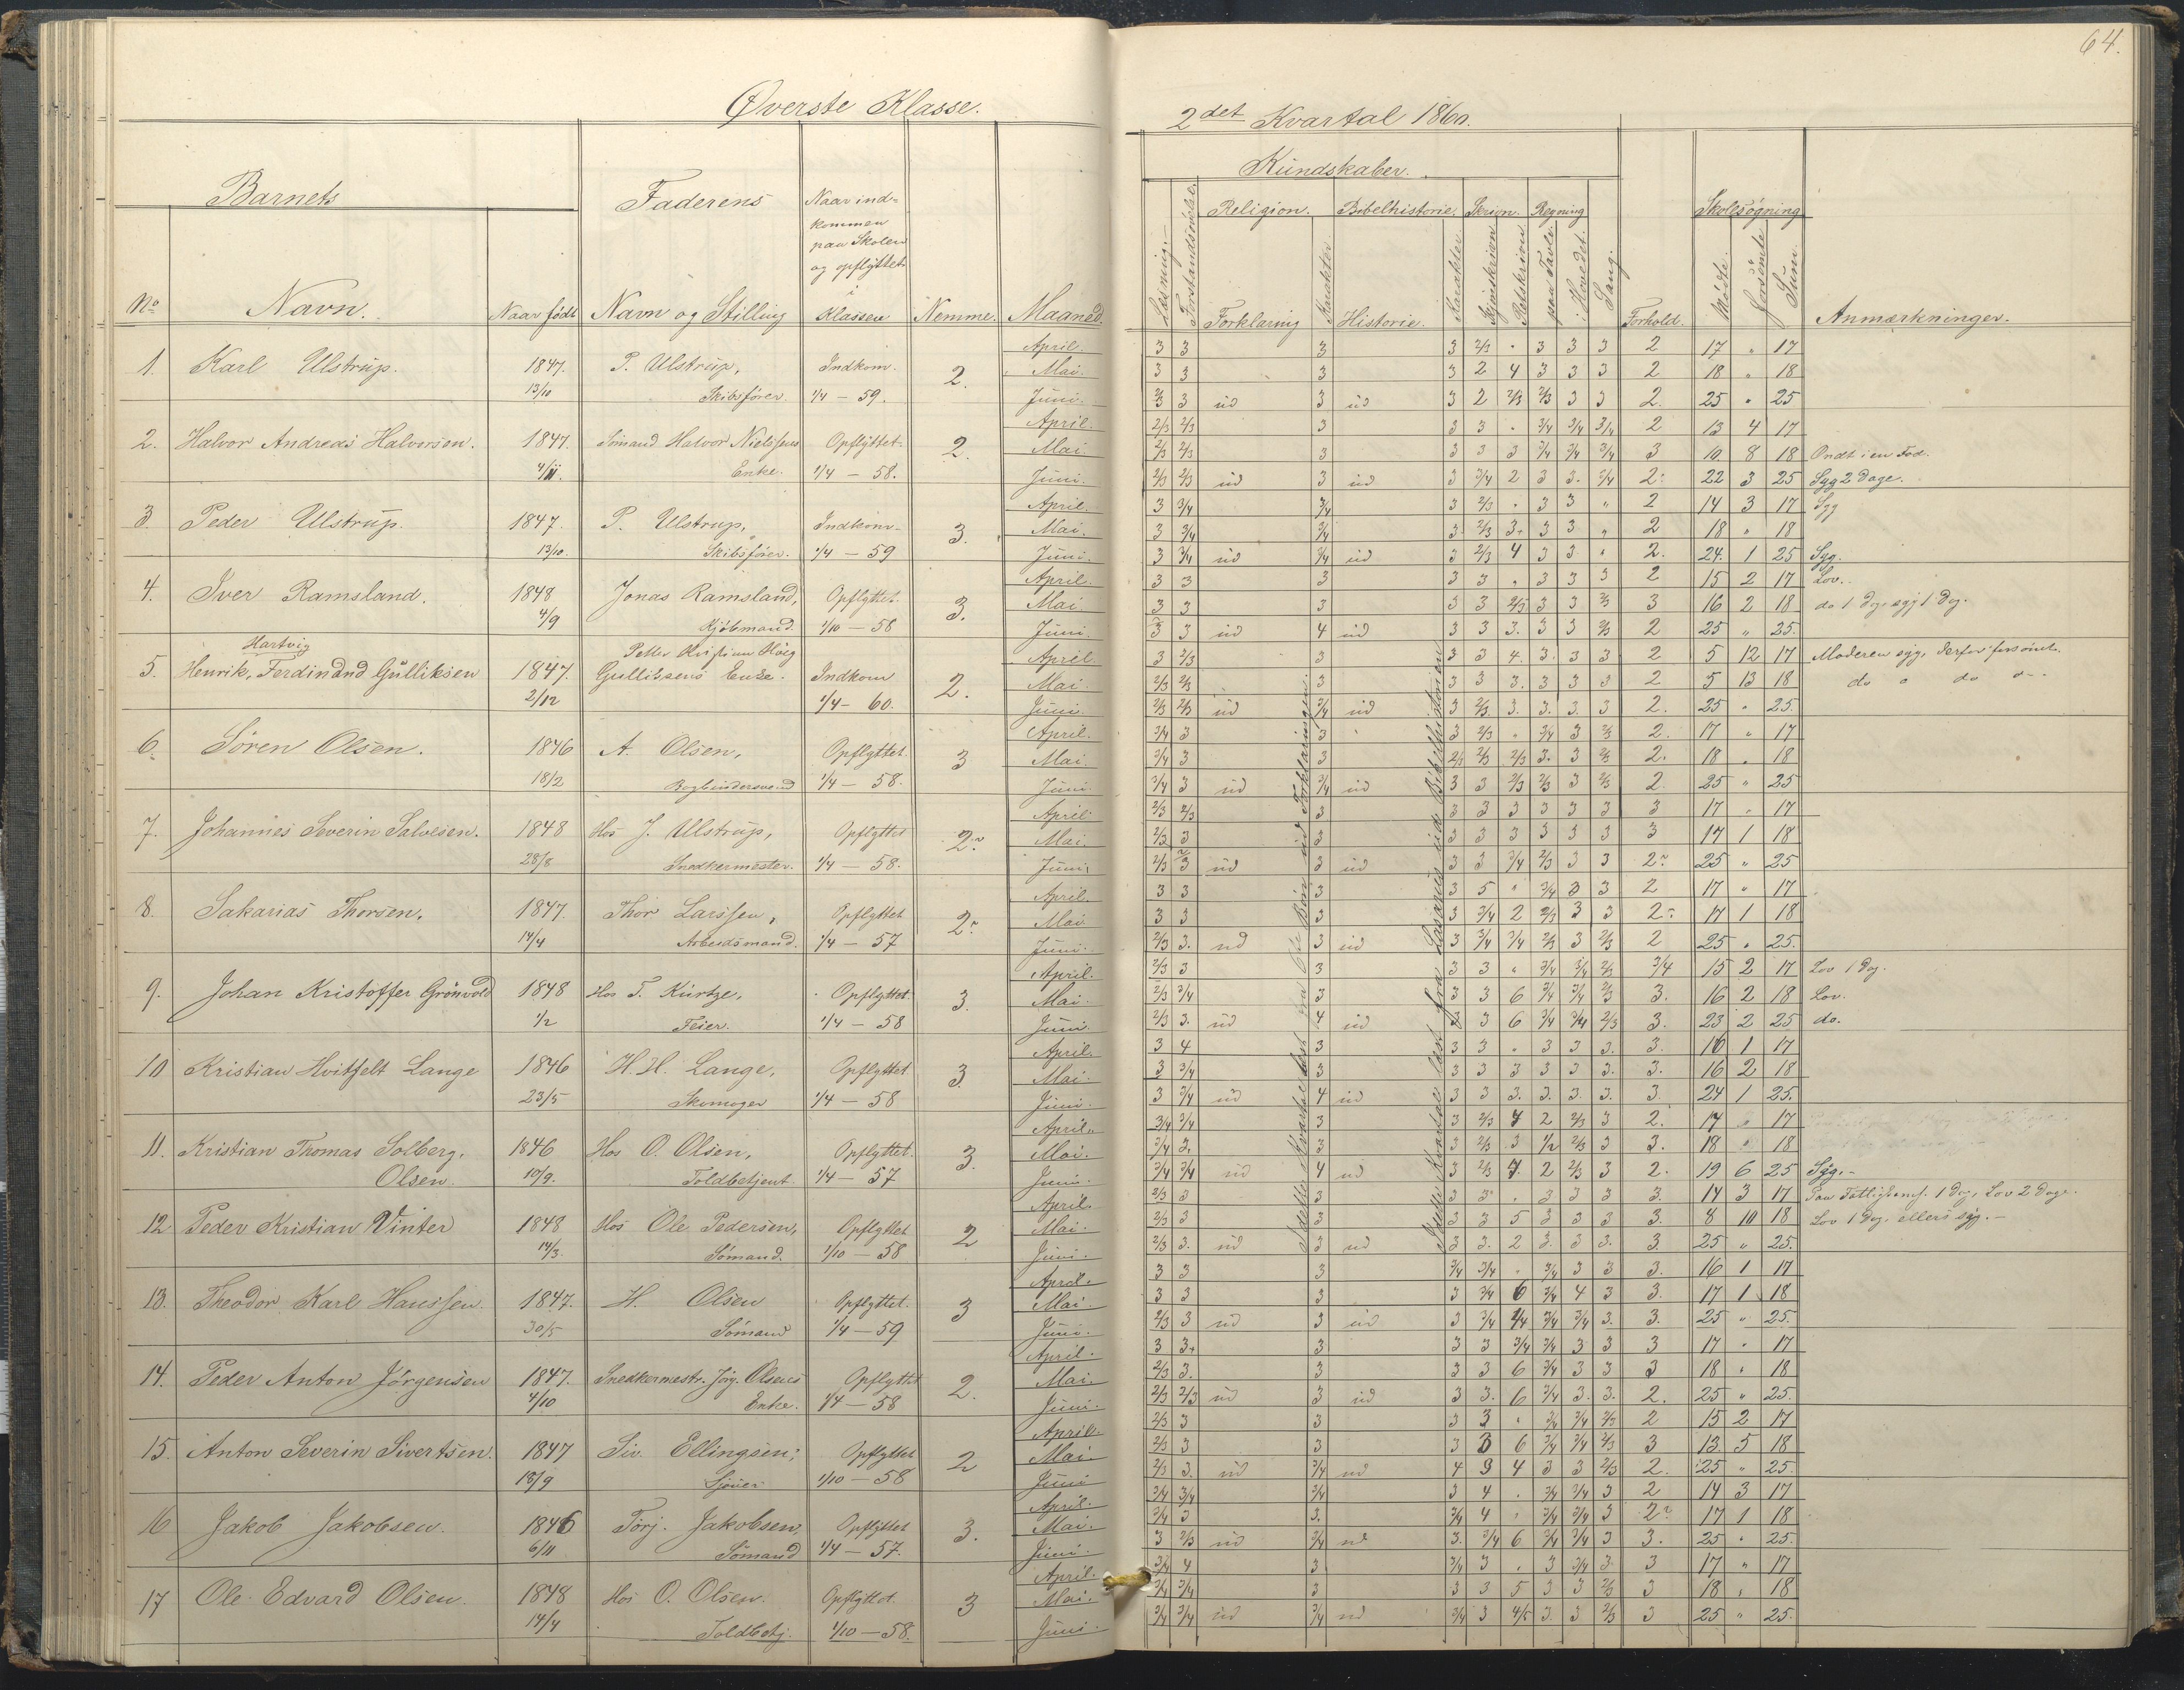 64.
Øverste Klasse.
2det Kvartal 1860.
Barnets
Faderens
Naar ind=
kommen
paa Skolen
og opflyttet
i
Klassen
No
Navn.
Naar født
Navn og Stilling
Nemme.
Maaned.
Kundskaber.
Læsning.
Forstandsøvelse.
Religion.
Forklaring
Karakter.
Bibelhistorie.
Historie.
Karakter.
Skrivn.
Retskrivn.
Regning
paa Tavle.
i Hovedet.
Sang.
Forhold.
Skolesøgning
Mødte.
Forsømte
Sum.
Anmærkninger.
1. Karl Ulstrup. 1847. P. Ulstrup, Indkom. 2.
13/10 Skibsfører. 1/4 – 59.
April. 3 3 3 3 2/3 " 3 3 3 2 17 " 17
Mai. 3 3 3 3 2 4 3 3 3 2 18 " 18
Juni. 2/3 3 ud 3 ud 3 2 2/3 2/3 3 3 2. 25 " 25
2. Halvor Andreas Halvorsen. 1847. Sømand Halvor Nielssens Opflyttet. 2.
4/11. Enke. 1/4 – 58.
April. 2/3 2/3 3 3 3 " 3/4 3/4 3/4 2 13 4 17
Mai. 2/3 2/3 3 3 3 3 3/4 3/4 3/4 3 10 8 18 Ondt i en Fod.
Juni. 2/3 2/3 ud 3 ud 3 3/4 2 3 3. 3/4 2. 22 3 25 Syg 2 Dage.
3. Peder Ulstrup. 1847. P. Ulstrup, Indkom. 3.
13/10. Skibsfører. 1/4 – 59
April. 3 3/4 3/4 3 2/3 " 3 3 " 2 14 3 17 Syg
Mai. 3 3/4 3/4 3. 2/3 3. 3 3 " 2 18 " 18
Juni. 3 3/4 ud 3/4 ud 3 2/3 4 3 3 " 2. 24. 1 25 Syg.
4. Iver Ramsland. 1848 Jonas Ramsland, Opflyttet. 3.
4/9 Kjøbmand. 1/10 – 58
April. 3 3 3 3 3 " 3 3 3 2 15 2 17 Lov.
Mai. 3 3 3 3 3 2/3 3 3 2/3 3 16 2 18 do 1 Dag, syg 1 Dag.
Juni. 3 3 ud 4 ud 3 3 3. 3 3 2/3 2 25 " 25.
Hartvig
5. Henrik, Ferdinand Gulliksen 1847. Petter Kristian Høeg
Gullissens Enke. Indkom 2.
2/12 1/4 – 60.
April. 3 2/3 3 3 3 4. 3. 3 3 2 5 12 17 Moderen syg, derfor forsømt.
Mai. 2/3 2/3 3 3 3 3. 3 3 3 2 5 13 18 do " do "
Juni. 2/3 2/3 ud 3/4 ud 3 2/3. 3. 3. 3. 3 2. 25 " 25.
6. Søren Olsen. 1846 A. Olsen, Opflyttet. 3
18/2 Bogbindersvend 1/4 – 58.
April. 3/4 3 3 3 2/3 " 3/4 3 2/3 2. 17 " 17
Mai. 3/4 3 3 2/3 2/3 2/3 3. 3 2/3 2. 18 " 18
Juni. 3/4 3 ud 3/4 ud 3 3 2/3 2/3 3 2/3 2. 25 " 25
7. Johannes Severin Salvesen. 1848 Hos J. Ulstrup, Opflyttet 2.
28/8 Snedkermester. 1/4 – 58.
April. 2/3 2/3 3 3 3 3 3 3 3 3 17 " 17
Mai. 2/3 3 3 3 3 3 3 3 3 3 17 1 18
Juni. 2/3 3 ud 3 ud 3 3 3/4 2/3 3 3 2. 25 " 25
8. Sakarias Thorsen. 1847. Thor Larssen, Opflyttet 2.
14/4 Arbeidsmand. 1/4 – 57
April. 3 3 3 3 5 " 3/4 3 3 2 17 " 17
Mai. 3 3 3 3 3/4 2 2/3 3 3 2. 17 1 18
Juni. 2/3 3. ud 3 ud 3 3/4 3/4 2/3 3 2/3 2 25 " 25.
9. Johan Kristoffer Grønvold 1848 Hos T. Kürtze, Opflyttet. 3.
1/2 Feier. 1/4 – 58
April. 2/3 3 3 3 3 " 3/4 3/4 2/3 3/4 15 2 17 Lov 1 Dag.
Mai. 2/3 3/4 3 3 3 6 3/4 3/4 2/3 3. 16 2 18 Lov.
Juni. 2/3 3. ud 4 ud 3 3 6 3/4 3/4 2/3 3. 23 2 25 do.
10 Kristian Hvitfelt Lange 1846 H. H. Lange, Opflyttet 3.
23/5 Skomager 1/4 – 58
April. 3 4 3 3 3 " 3 3 3. 3. 16 1 17
Mai. 3 3/4 3 3 3 3 3 3 3. 3. 16 2 18
Juni. 3 3/4 ud 4 ud 3 3 3. 3. 3. 3. 3. 24 1 25.
11. Kristian Thomas Solberg. 1846 Hos O. Olsen, Opflyttet. 3.
Olsen. 10/9. Toldbetjent. 1/4 – 57
April. 3/4 3/4 3 3 2/3 4 2 2/3 3 2. 17 " 17
Mai. 3/4 3. 3 3 2/3 3 1/2 2/3 3 3. 18 " 18
Juni. 3/4 3/4 ud 4 ud 3 2/3 4. 2 2/3 3 2. 19 6 25 Syg.
12 Peder Kristian Vinter 1848 Hos Ole Pedersen, Opflyttet 2
14/3. Sømand. 1/10 – 58
April. 2/3 3 3 3 3 " 3 3 3 3. 14 3 17 1 Dag, Lov 2 Dage.
Mai. 2/3 3 3 3 3 5 3 3 3 3. 8 10 18 Lov 1 Dag, ellers syg.
Juni. 2/3 3. ud 3 ud 3 3. 2 3. 3 3. 3. 25 " 25.
13. Theodor Karl Hanssen. 1847. H. Olsen Opflyttet. 3
30/5 Sømand 1/4 – 59
April. 3 3 3 3/4 3/4 " 3/4 3 3 3. 16 1 17
Mai. 3 3 3 3 3/4 6 3/4 4 3 3. 17 1 18
Juni. 2/3 3 ud 3 ud 3 3/4 4/4 3/4 3/4 3. 3. 25 " 25.
14. Peder Anton Jørgensen 1847. Snedkermestr. Jørg. Olsens Opflyttet 2.
4/10 Enke. 1/4 – 58
April. 3 3. 3 3 3 3/4 3/4 3 3 3 17 " 17
Mai. 2/3 3. 3 3 3 6 3/4 3 3 3 18 " 18
Juni. 2/3 2/3 ud 3 ud 3 3. 6 3/4 3. 3. 2. 25 " 25.
15. Anton Severin Sivertsen. 1847 Siv. Ellingsen, Opflyttet 2
18/9 1/10 – 58
April. 2/3 3 3 3 3 " 3/4 3/4 2/3 2 15 2 17
Mai. 2/3 3 3 3 3 6 3/4 3/4 2/3 3 13. 5 18
Juni 2/3 3. ud 3/4 ud 4 3 4 3 3 2/3 2. 25 " 25.
16 Jakob Jakobsen. 1846 Torj. Jakobsen, Opflyttet 3.
6/11 Sømand 1/4 – 57.
April. 3/4 3/4 3/4 3 4 " 3/4 3/4 3 2 14 3 17
Mai. 3/4 3 3. 3/4 4 " 3/4 3/4 3 2. 17 1 18
Juni. 3 2/3 ud 3/4 ud 3. 3/4 6 3/4 3/4 3 3. 25 " 25.
17 Ole Edvard Olsen. 1848 Hos O. Olsen. Opflyttet. 3
14/4 Toldbetj. 1/10 – 58.
April. 3/4 4 3 3/4 3 " 3 3/4 3. 3 17 " 17
Mai. 3/4 3/4 3 3 3 5 3 3 2/3 3 18 " 18
Juni. 3/4 3/4 ud 3/4 ud 3/4 3 4/5 3. 3 2/3 3 25 " 25.